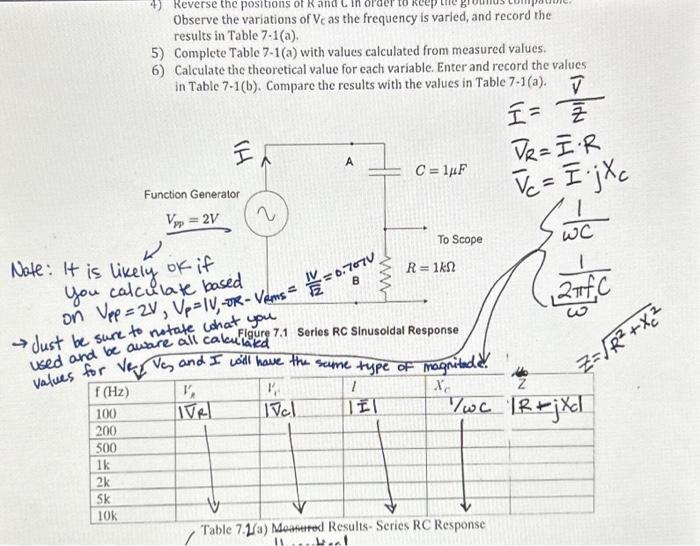 4) Reverse the positions of R and C in order to keep the grounds compatible.
Observe the variations of Vc as the frequency is varied, and record the
results in Table 7-1(a).
5) Complete Table 7-1(a) with values calculated from measured values.
6) Calculate the theoretical value for each variable. Enter and record the values
in Table 7-1(b). Compare the results with the values in Table 7-1(a).
Ī = V̄/Z̄
V̄R = Ī·R
V̄c = Ī·jXc
1/ωC
1/2πfC
ω
Z=√R²+Xc²
Ī
A
C = 1μF
Function Generator
Vpp = 2V
To Scope
R = 1kΩ
B
Note: It is likely ok if
you calculate based
on Vpp=2V, Vp=1V, -OR- Vrms = 1V/√2 = 0.707V
→ Just be sure to notate what you
used and be aware all calculated
values for VR, Vc, and I will have the same type of magnitude.
Figure 7.1 Series RC Sinusoidal Response
f (Hz) VR Vc I Xc Z
100 |V̄R| |V̄c| |Ī| 1/ωC |R+jXc|
200
500
1k
2k
5k
10k
Table 7.1(a) Measured Results- Series RC Response